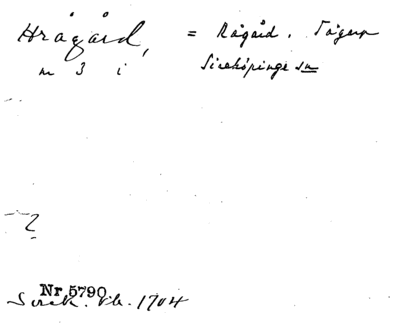 Hrågård, = Rågård. Tågerp
m 3 i Sireköpinge sn
?
Nr 5790
Sirek. kb. 1704